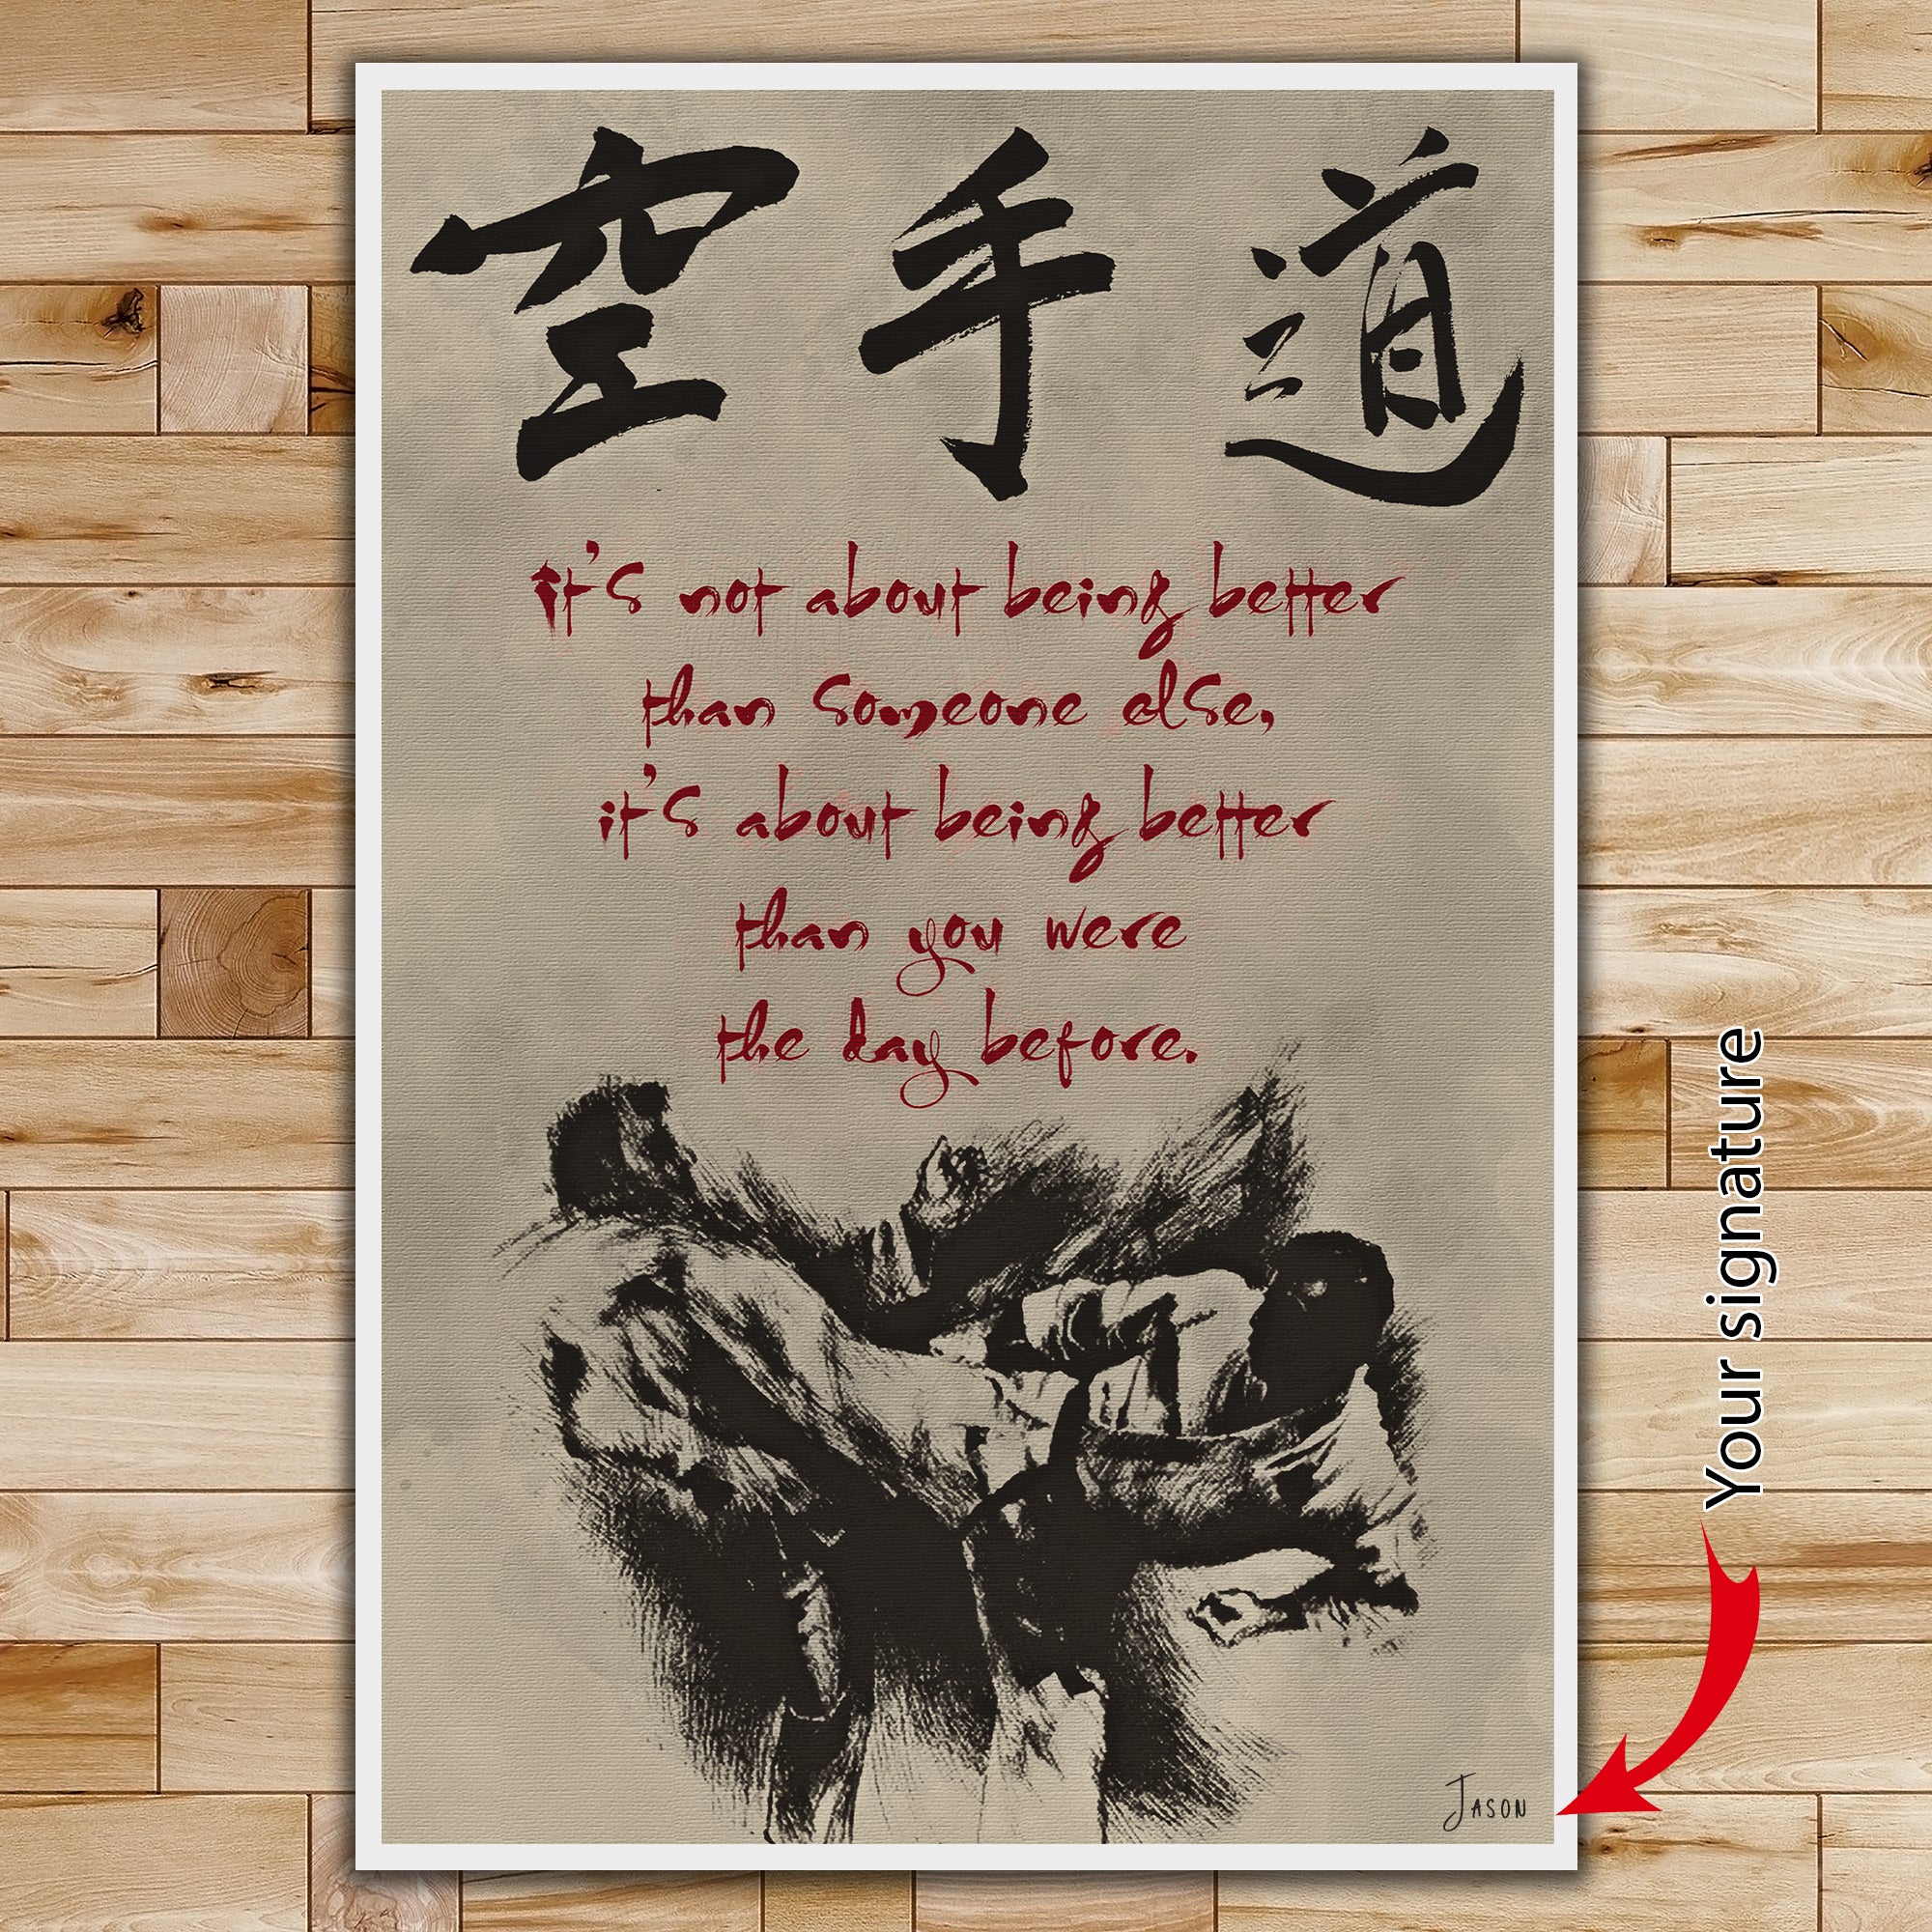 空手道
it's not about being better
than someone else,
it's about being better
than you were
the day before.
Your signature
JASON